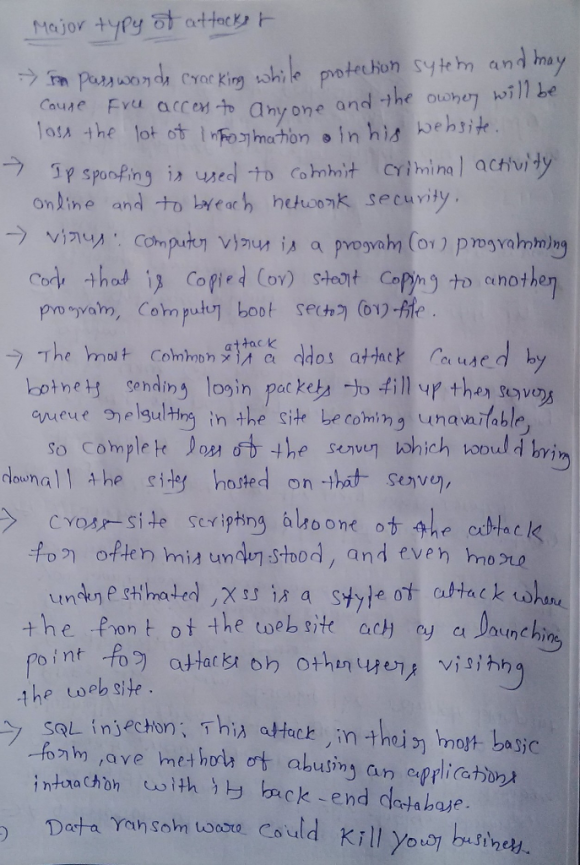 Major typy of attacks +
-> In passwords cracking while protection sytem and may
cause Free access to anyone and the owner will be
loss the lot of information. In his website.
-> Ip spoofing is used to commit criminal activity
online and to breach network security.
-> virus: computer virus is a program (or) programming
code that is copied (or) start copying to another
program, computer boot sector (or) file.
-> The most common attack is a ddos attack caused by
botnets sending login packets to fill up ther servers
queue relsulting in the site becoming unavailable,
so complete loss of the server which would bring
down all the sites hosted on that server,
-> cross-site scripting also one of the attack
for often misunderstood, and even more
underestimated, XSS is a style of attack where
the front of the website acts as a launching
point for attacks on other users visiting
the website.
-> SQL injection: This attack, in their most basic
form, are methods of abusing an applications
interaction with its back-end database.
Data ransomware could kill your business.